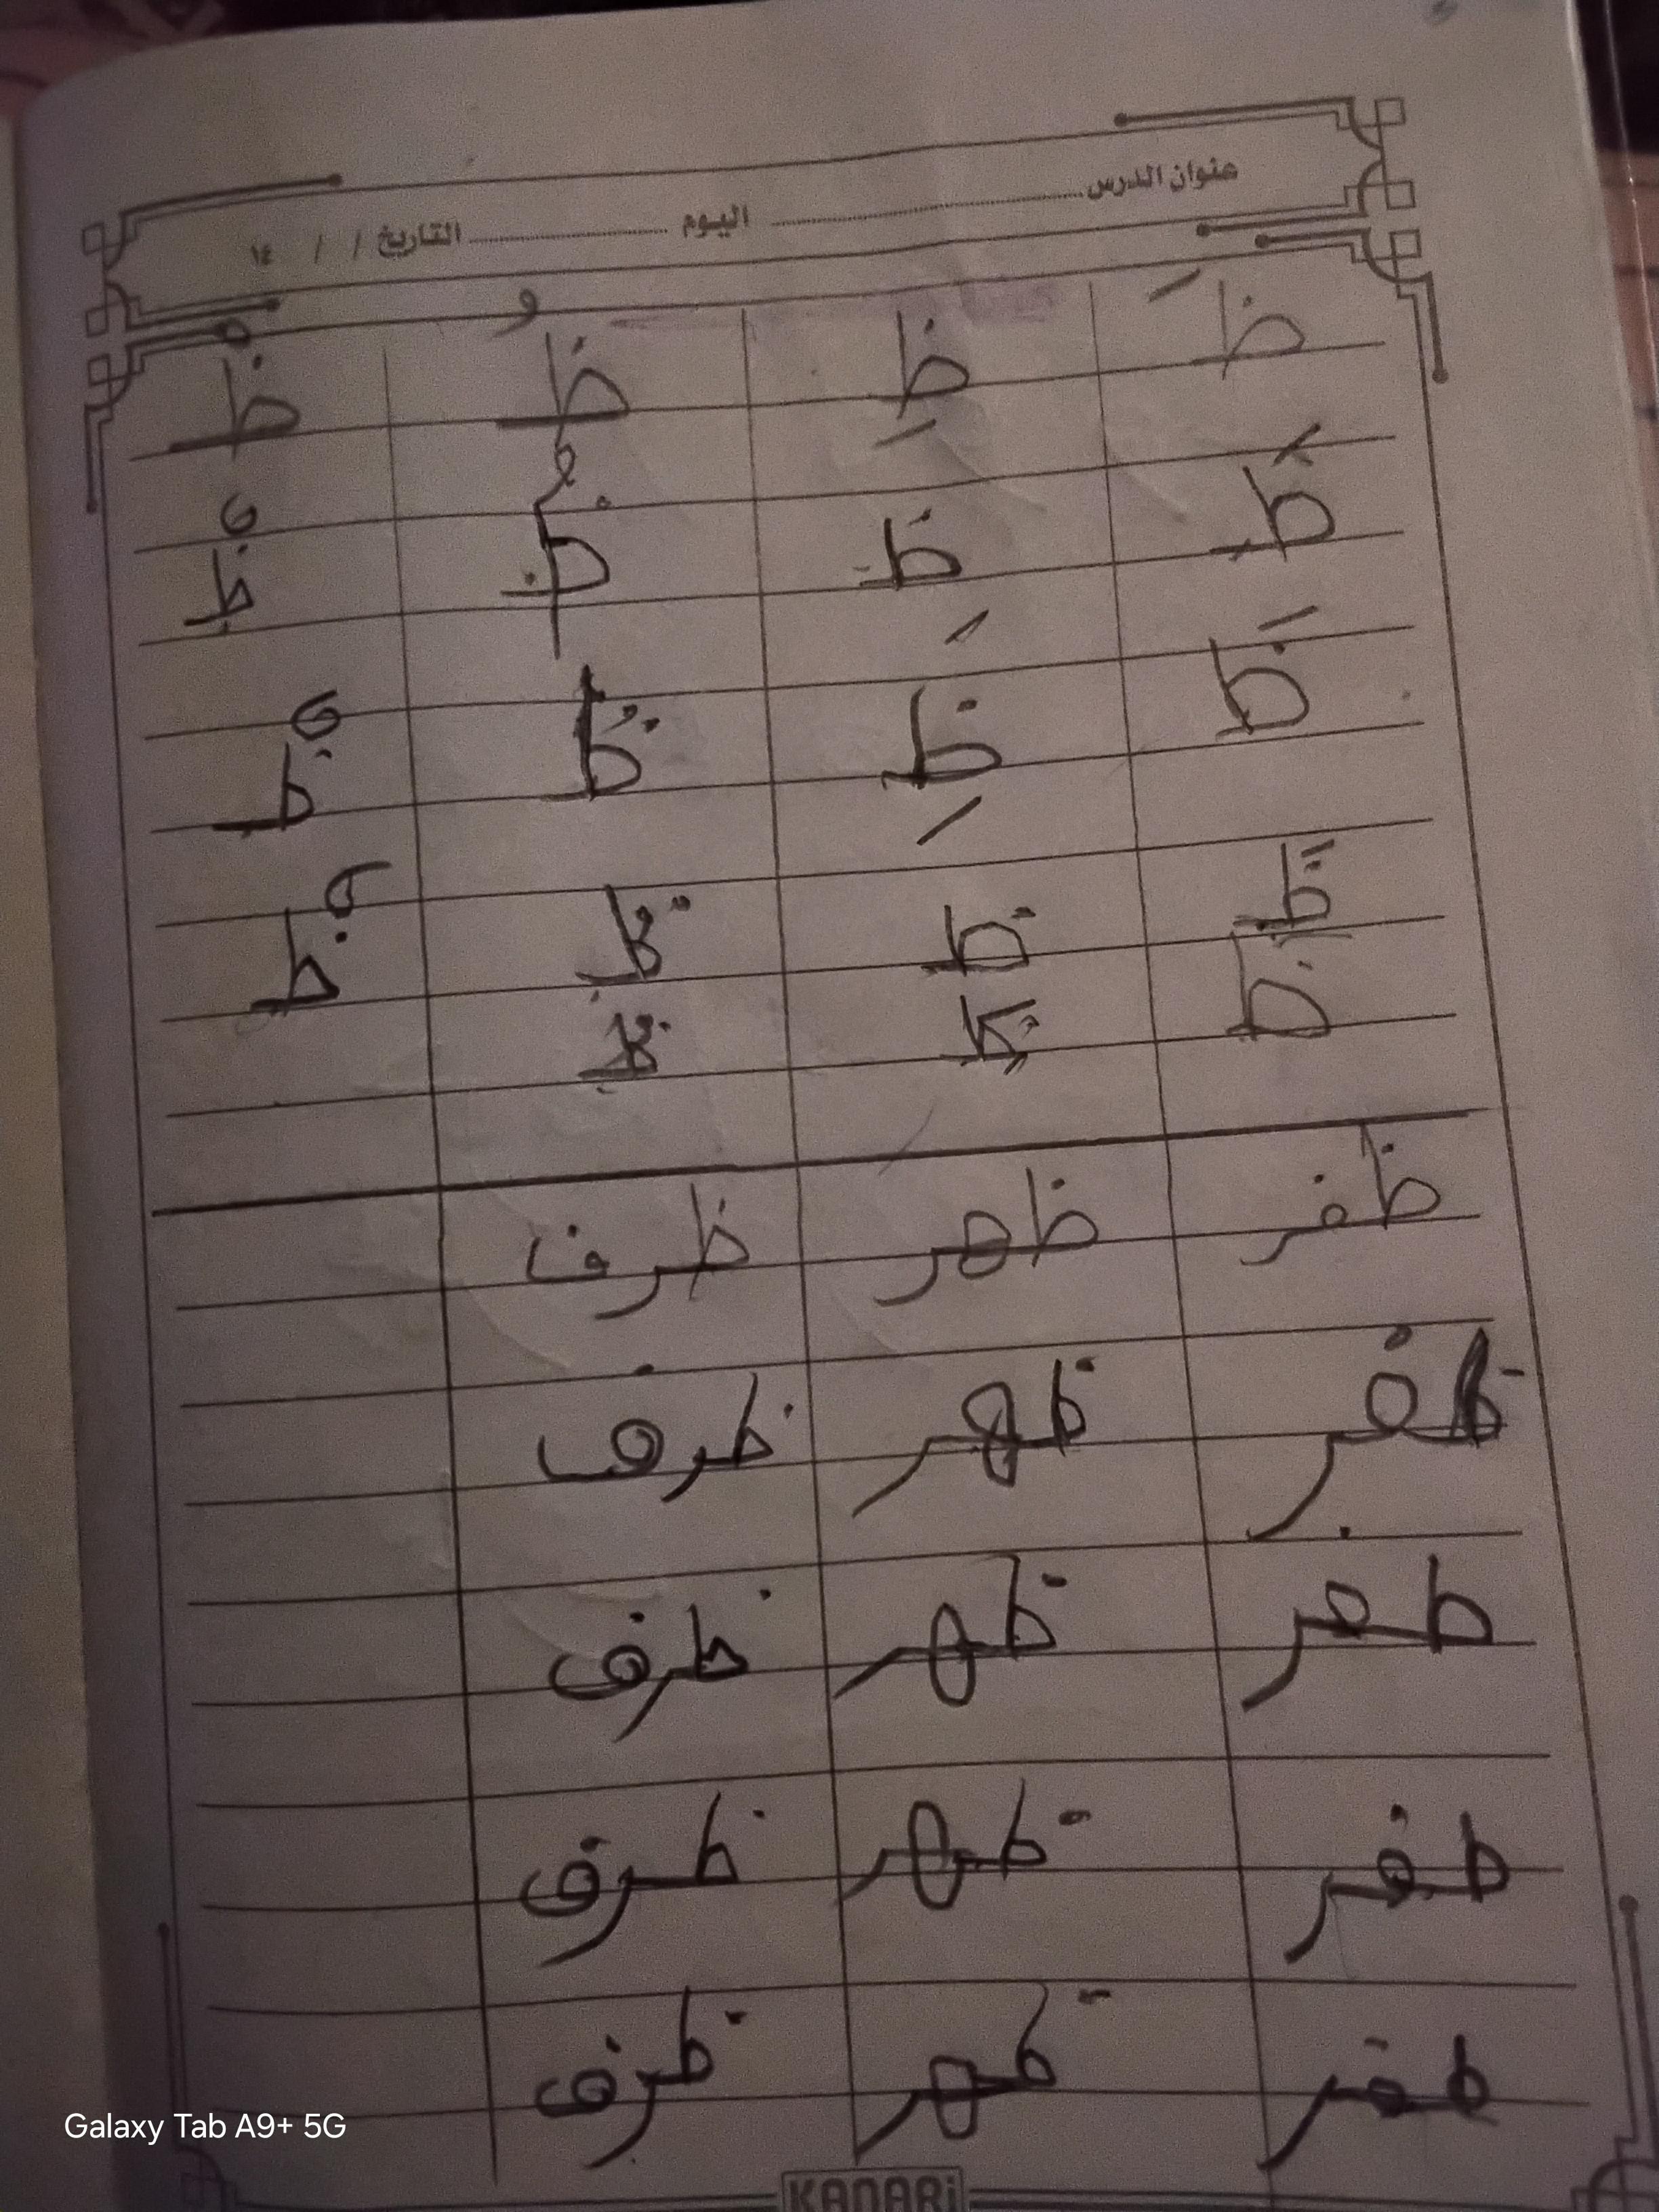 عنوان الدرس ........ اليوم ........ التاريخ / / ١٤
ظَ ظِ ظُ ظْ
ظَ ظَ ظُ ظْ
ظَ ظِ ظُ ظْ
ظَ ظ ظُ ظْ
ظ ظِ ظُ
ظفر ظهر ظرف
ظفر ظهر ظرف
طفر ظهر ظرف
طفر ظهر ظرف
طفر ظهر ظرف
KANARi
Galaxy Tab A9+ 5G